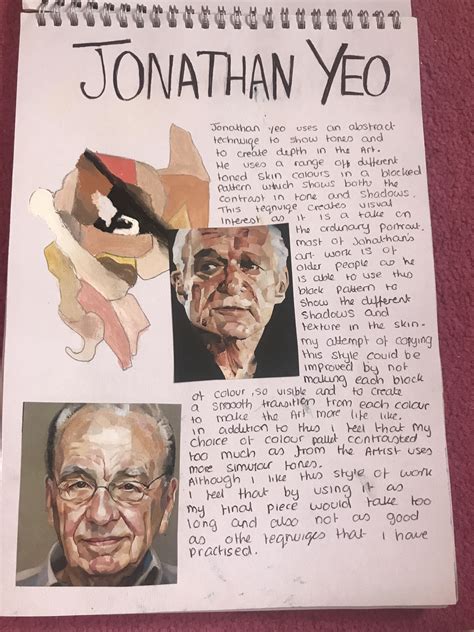 JONATHAN YEO
Jonathan yeo uses an abstract
technuige to show tones and
to create depth in the Art.
He uses a range off different
toned skin colours in a blocked
Pattern which shows both the
contrast in tone and shadows.
This teqnuige creates visual
interest as it is a take on
the ordunary portrait.
most of Johathan's
art work is of
older people as he
is able to use this
block pattern to
show the different
shadows and
texture in the skin.
my attempt of copying
this style could be
improved by not
making each block
of colour, so visible and to create
a smooth transition from each colour
to make the Art more life like.
in addition to thus i feel that my
choice of colour pallet contrasted
too much as from the Artist uses
more simular tones.
Although i like this style of work
i feel that by using it as
my final piece would take too
long and also not as good
as othe teqnuiges that i have
practised.